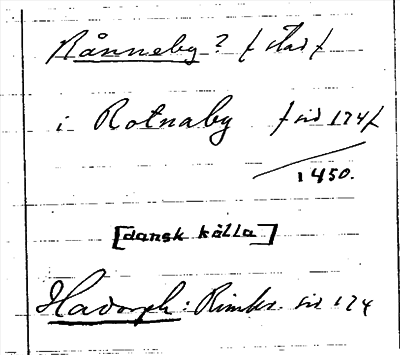 Rånneby? / stad /
i Rotnaby / sid 174/
1450.
[dansk källa]
Hadorph: Rimkr. sid 174